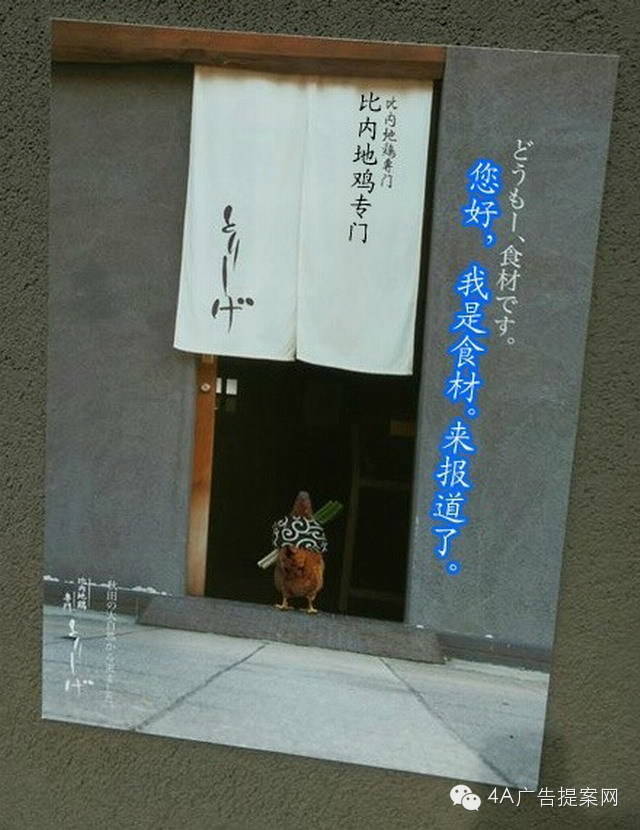 どうもー、食材です。
您好，我是食材。来报道了。
比内地鶏専门
比内地鸡专门
とりしげ
比内地鶏
専門
とりしげ
4A广告提案网